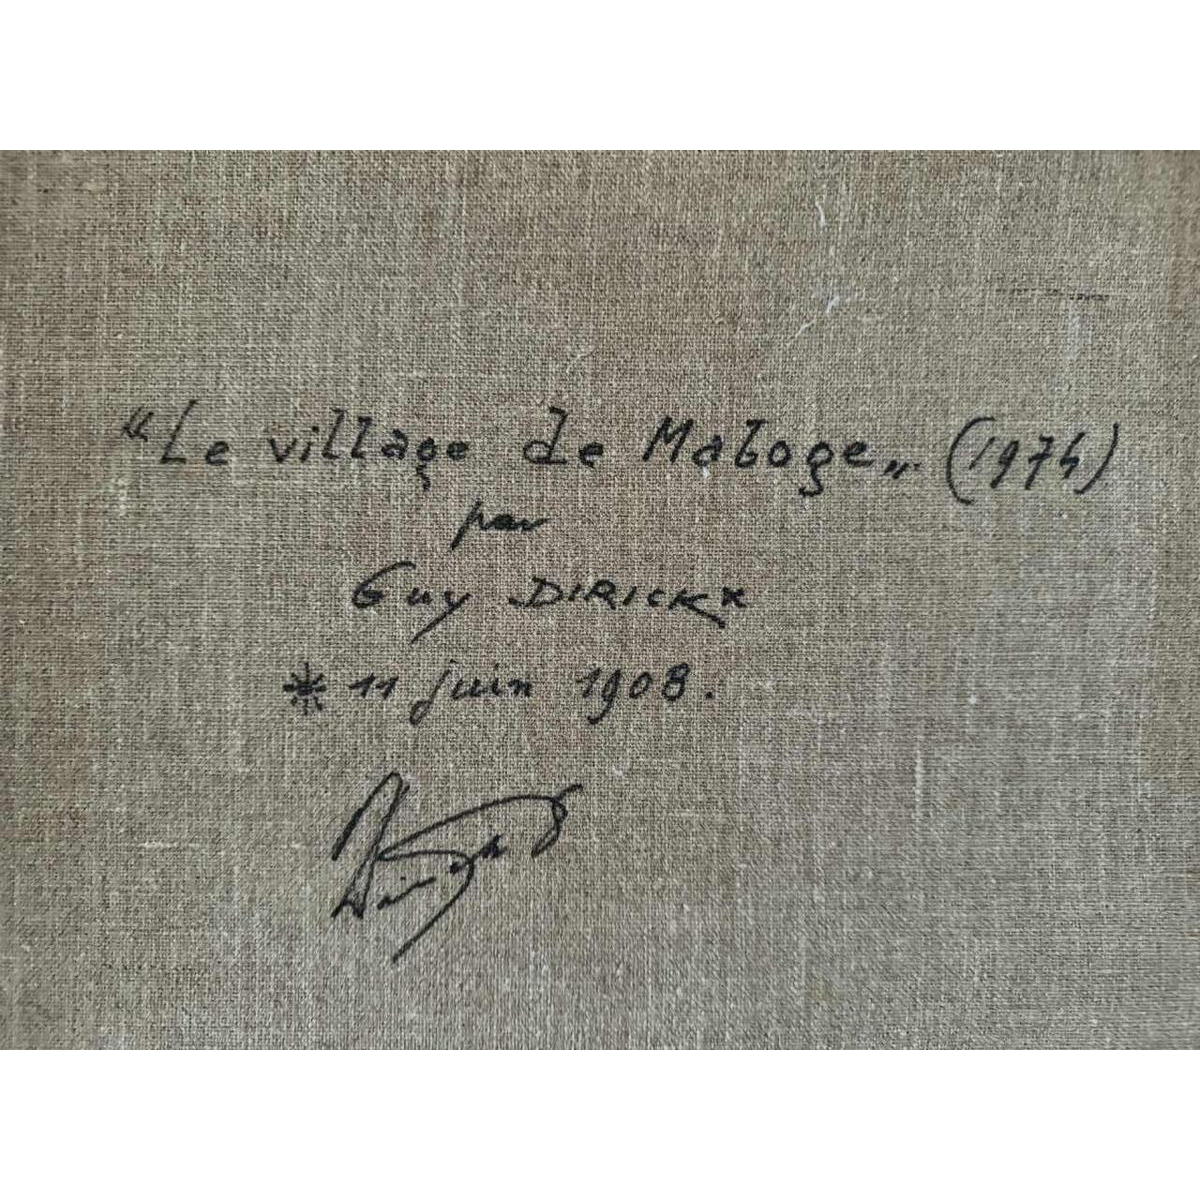 "Le village de Maboge„ (1974)
par
Guy DIRICKX
* 11 juin 1908.